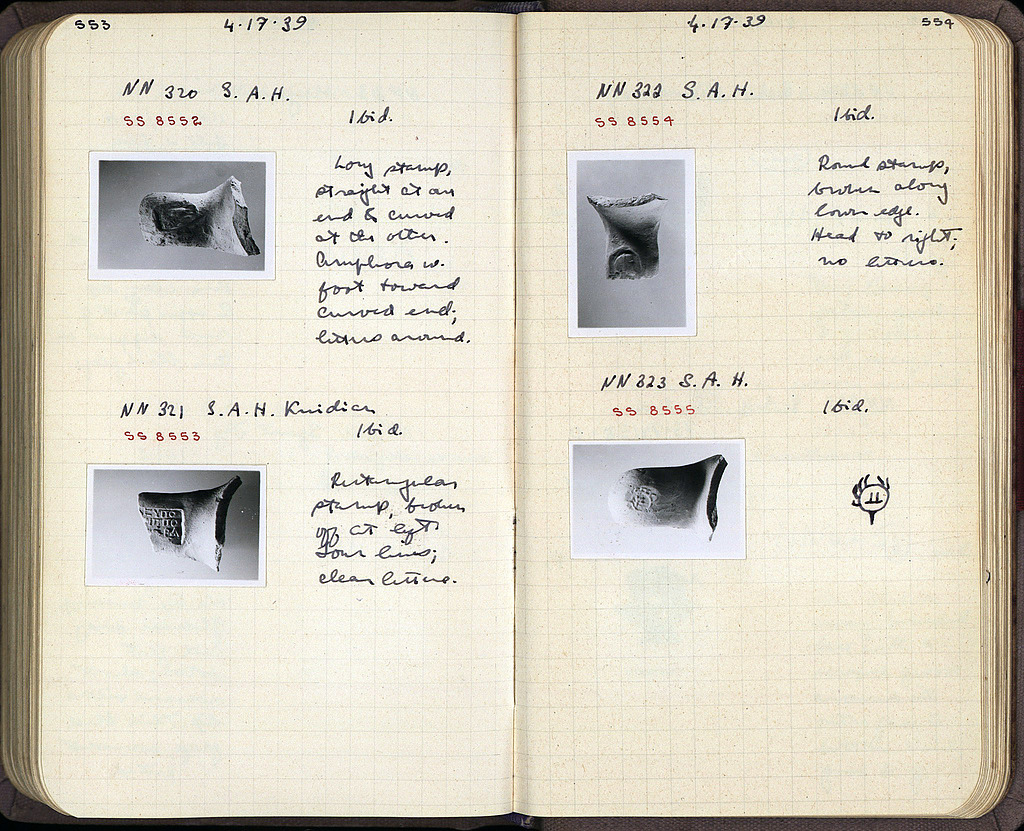 553
4·17·39
NN 320 S.A.H.
SS 8552
Ibid.
Long stamp,
straight at an
end & curved
at the other.
Amphora w.
foot toward
curved end;
letters around.
NN 321 S.A.H. Knidian
SS 8553
Ibid.
Rectangular
stamp, broken
off at left
four lines;
clear letters.
4·17·39
554
NN 322 S.A.H.
SS 8554
Ibid.
Round stamp,
broken along
lower edge.
Head to right;
no letters.
NN 323 S.A.H.
SS 8555
Ibid.